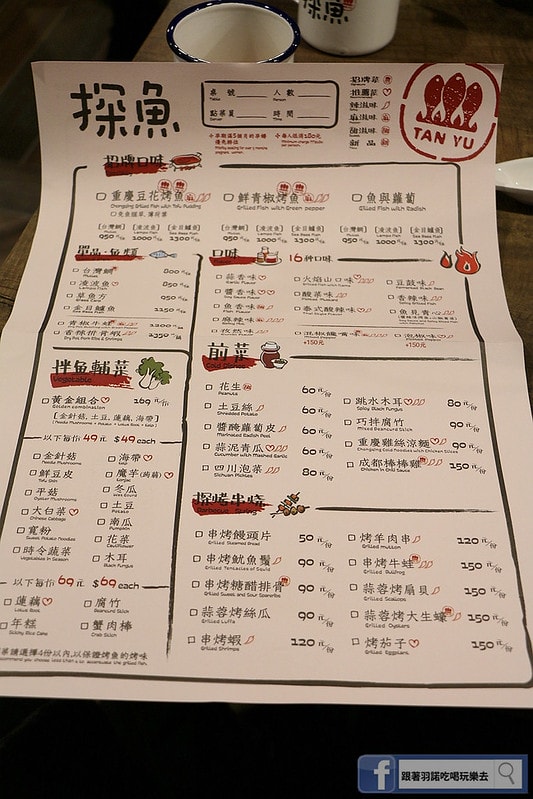 探魚
探魚
桌 號 人 數
Table Person
點菜員 時 間
Server Time
招牌菜
推薦菜
辣滋味
麻滋味
甜滋味
新 品
TAN YU
招牌口味
重慶豆花烤魚
Chongqing Grilled Fish with Tofu Pudding
鮮青椒烤魚
Grilled Fish with Green pepper
魚與蘿蔔
Grilled Fish with Radish
[台灣鯛] [凌波魚] [金目鱸魚]
950元 1000元 1300元
[台灣鯛] [凌波魚] [金目鱸魚]
950元 1000元 1300元
[台灣鯛] [凌波魚] [金目鱸魚]
950元 1000元 1300元
單品·魚類
台灣鯛 800元/份
凌波魚 850元/份
草魚方 950元/份
金目鱸魚 1150元/份
青椒牛蛙
香辣拼膏蟹
口味 16種口味
蒜香味
醬香味
魚香味
麻辣味
孜然味
火焰山口味
酸菜味
泰式酸辣味
+150元
豆鼓味
香辣味
泡椒味
+150元
拌魚輔菜
Vegetable
黃金組合 169元/份
Golden combination
[金針菇, 土豆, 蓮藕, 海帶]
以下每份49元 $49 each
金針菇
海帶
鮮豆皮
魔芋(蒟蒻)
平菇
冬瓜
大白菜
土豆
寬粉
南瓜
時令蔬菜
花菜
木耳
以下每份69元 $69 each
蓮藕
腐竹
年糕
蟹肉棒
前菜
Cold Dishes
花生 60元/份
Peanuts
土豆絲 60元/份
Shredded Potato
醬醃蘿蔔皮 60元/份
Marinated Radish Peel
蒜泥青瓜 60元/份
Cucumber with Mashed Garlic
四川泡菜 80元/份
Sichuan Pickles
跳水木耳 80元/份
Spicy Black Fungus
巧拌腐竹 90元/份
Mixed Beancurd Stick
重慶雞絲涼麵 90元/份
Chongqing Cold Noodles with Chicken Slices
成都棒棒雞 150元/份
Chicken in Chili Sauce
探烤串燒
串烤饅頭片 50元/份
Grilled Steamed Bread
串烤魷魚鬚 90元/份
Grilled Tentacles of Squid
串烤糖醋排骨 90元/份
Grilled Sweet and Sour Spareribs
蒜蓉烤絲瓜 90元/份
Grilled Luffa
串烤蝦 120元/份
Grilled Shrimps
烤羊肉串 120元/份
Grilled mutton
串烤牛蛙 150元/份
Grilled Bullfrog
蒜蓉烤扇貝 150元/份
Grilled Scallops
蒜蓉烤大生蠔 150元/份
Grilled Oysters
烤茄子 150元/份
Grilled Eggplant
菜請選擇4份以內,以保證烤魚的烤味
跟著羽諾吃喝玩樂去